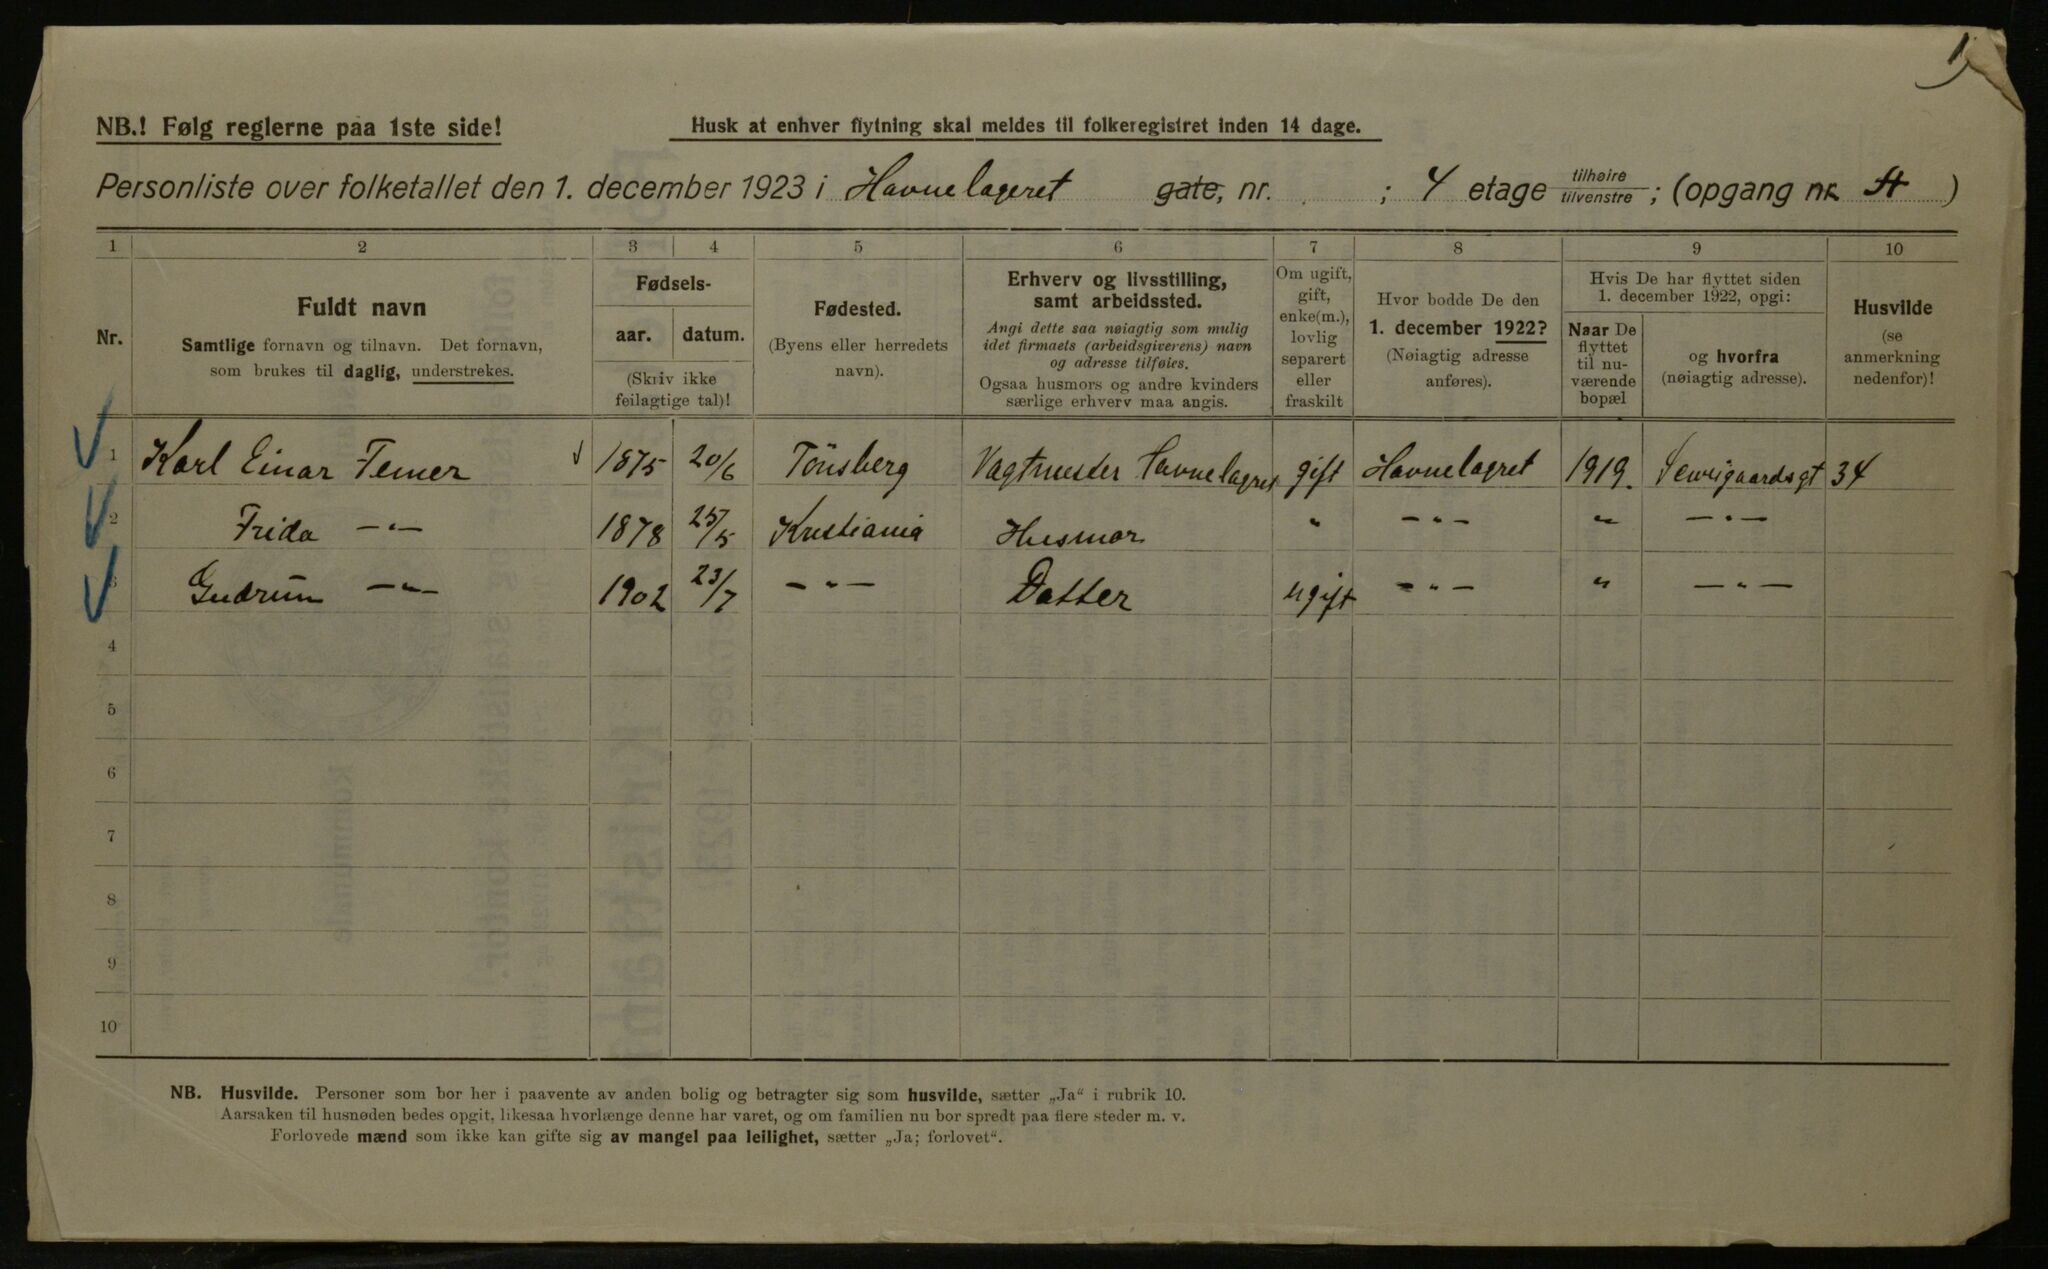 1
NB.! Følg reglerne paa 1ste side!
Husk at enhver flytning skal meldes til folkeregistret inden 14 dage.
Personliste over folketallet den 1. december 1923 i Havnelageret gate, nr. ; 4 etage tilhøire/tilvenstre; (opgang nr. A)
1 2 3 4 5 6 7 8 9 10
Nr.
Fuldt navn
Samtlige fornavn og tilnavn. Det fornavn,
som brukes til daglig, understrekes.
Fødsels-
aar. datum.
(Skriv ikke
feilagtige tal)!
Fødested.
(Byens eller herredets
navn).
Erhverv og livsstilling,
samt arbeidssted.
Angi dette saa nøiagtig som mulig
idet firmaets (arbeidsgiverens) navn
og adresse tilføies.
Ogsaa husmors og andre kvinders
særlige erhverv maa angis.
Om ugift,
gift,
enke(m.),
lovlig
separert
eller
fraskilt
Hvor bodde De den
1. december 1922?
(Nøiagtig adresse
anføres).
Hvis De har flyttet siden
1. december 1922, opgi:
Naar De
flyttet
til nu-
værende
bopæl
og hvorfra
(nøiagtig adresse).
Husvilde
(se
anmerkning
nedenfor)!
1 Karl Einar Temer 1875 20/6 Tönsberg Vagtmester Havnelagret gift Havnelagret 1919. 34
2 Frida —"— 1878 25/5 Kristiania Husmor " —"— " —"—
3 Gudrun —"— 1902 23/7 —"— Datter ugift —"— " —"—
4
5
6
7
8
9
10
NB. Husvilde. Personer som bor her i paavente av anden bolig og betragter sig som husvilde, sætter „Ja" i rubrik 10.
Aarsaken til husnøden bedes opgit, likesaa hvorlænge denne har varet, og om familien nu bor spredt paa flere steder m. v.
Forlovede mænd som ikke kan gifte sig av mangel paa leilighet, sætter „Ja; forlovet".